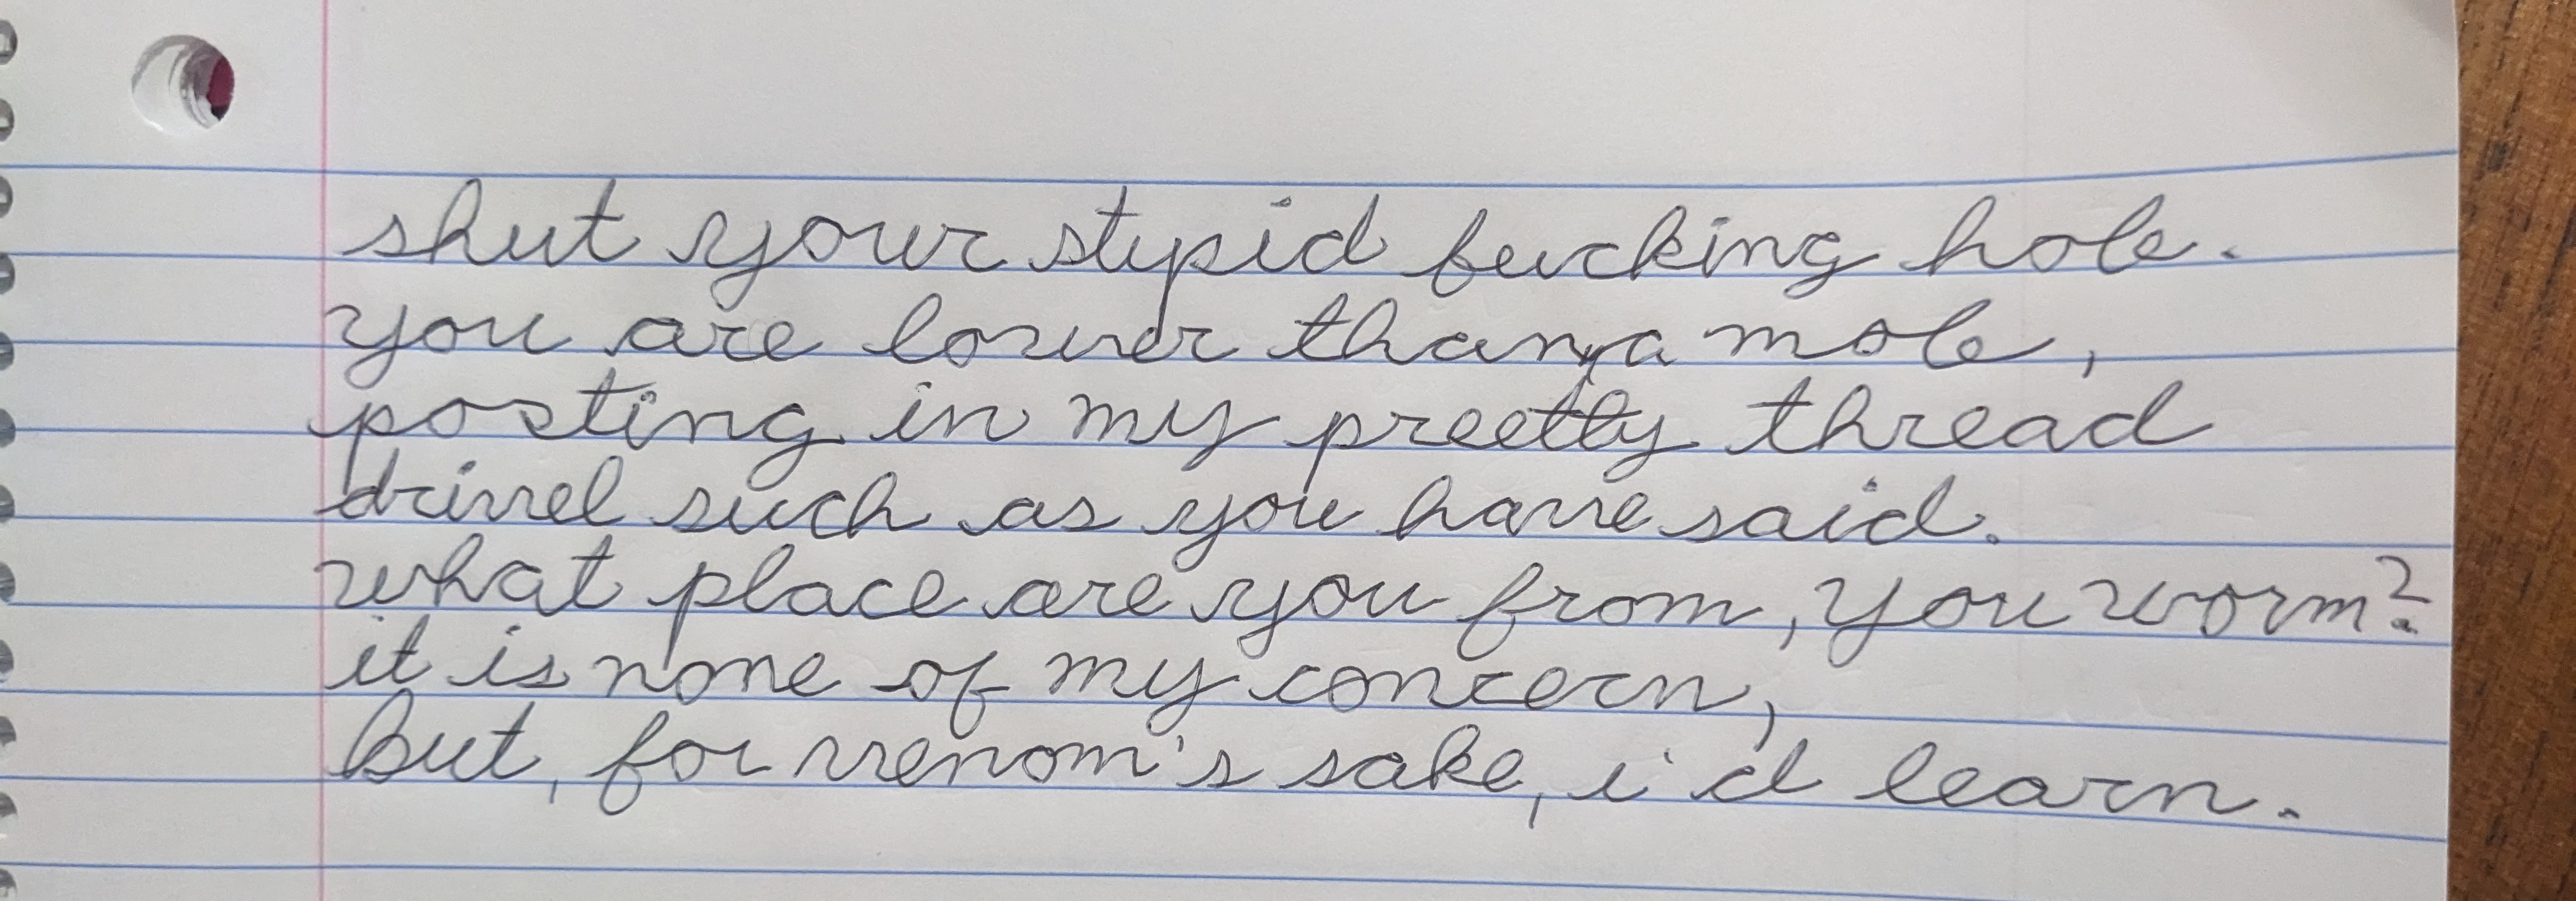 shut your stupid fucking hole.
you are lower than a mole,
posting in my preetty thread
drivel such as you have said.
what place are you from, you worm?
it is none of my concern,
But, for venom's sake, i'd learn.